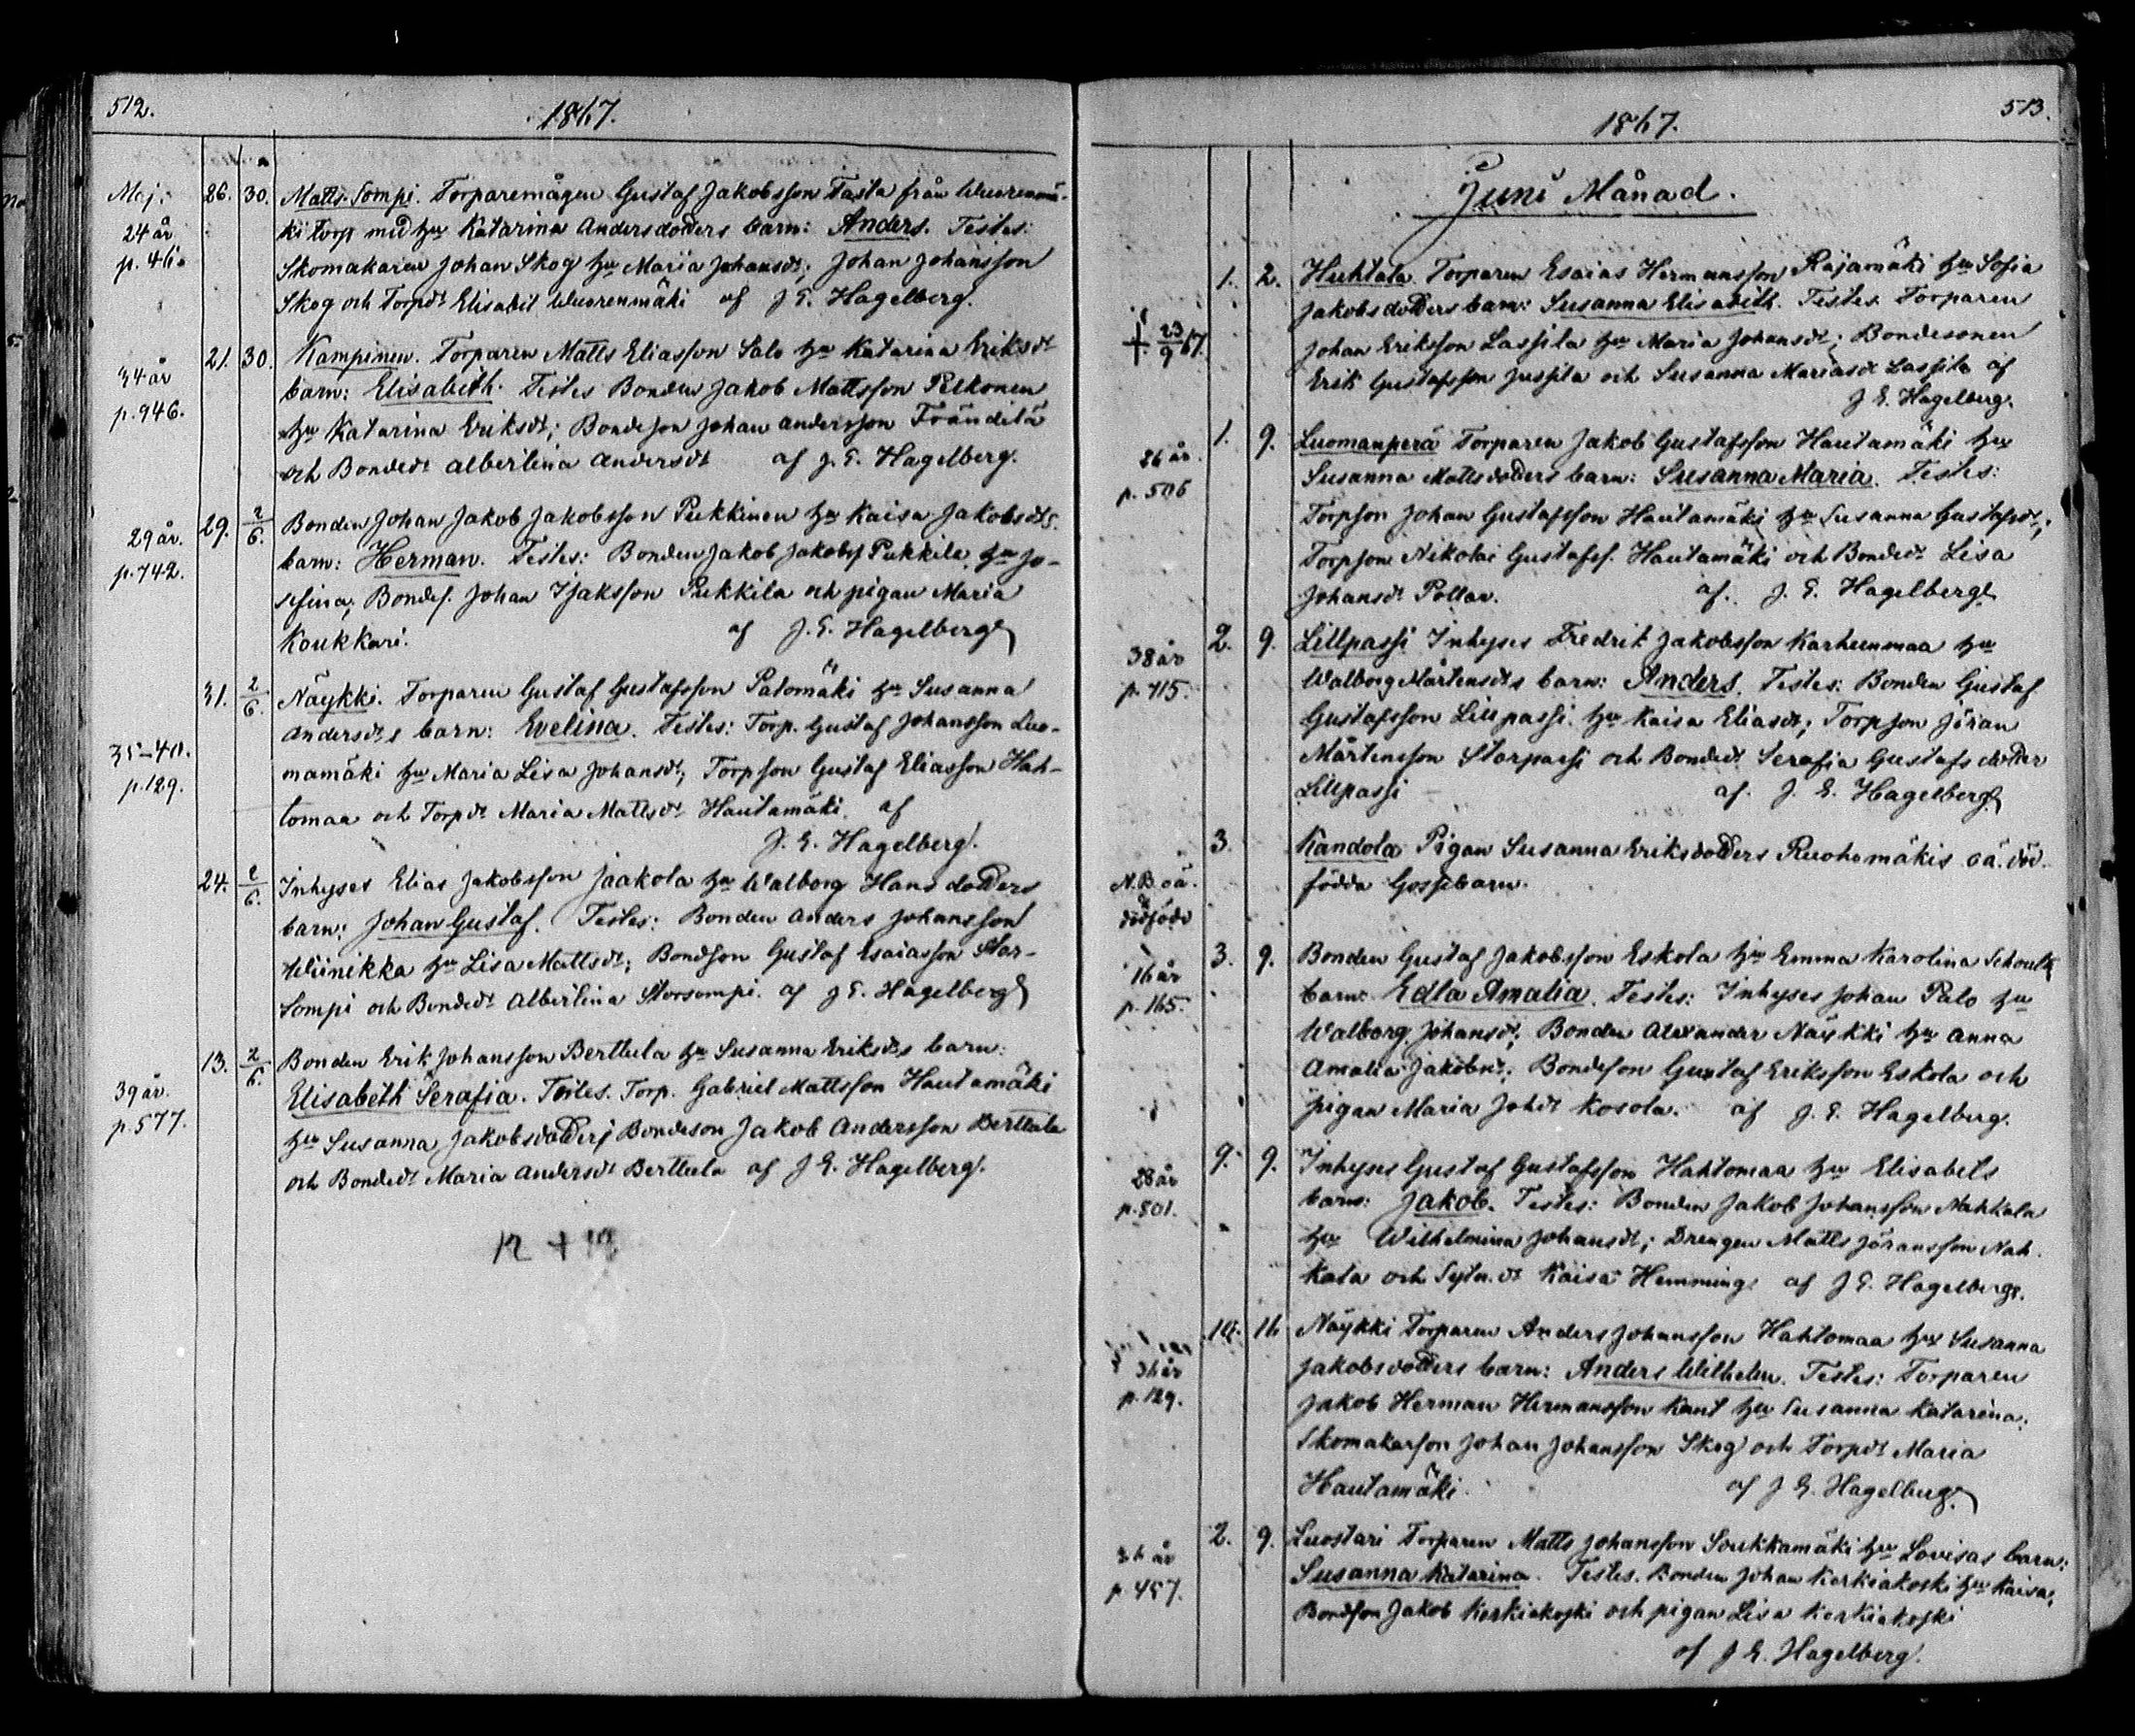 512.
1867.
Maj: 26. 30. Matts-Sompi. Torparemågen Gustaf Jakobsson Tasta från Wuorenmä-
24 år ki torp med hu Katarina Andersdotters barn: Anders. Testes:
p. 46. Skomakaren Johan Skog hu Maria Johansdt; Johan Johansson
Skog och Torpdt Elisabet Wuorenmäki af J E. Hagelberg.
34 år 21. 30. Kampinen. Torparen Matts Eliasson Salo hu Katarina Eriksdt
p. 946. barn: Elisabeth. Testes Bonden Jakob Mattsson Pelkonen
hu Katarina Eriksdt; Bondeson Johan Andersson Fränditä
och Bondedt Albertina Andersdt af J. E. Hagelberg.
29 år. 29. 2/6. Bonden Johan Jakob Jakobsson Pukkinen hu Kaisa Jakobsdts
p. 742. barn: Herman. Testes: Bonden Jakob Jakobsf Pukkila, hu Jo-
sefina; Bondes. Johan Isaksson Pukkila och pigan Maria
Koukkari. af J. E. Hagelberg
31. 2/6. Näykki. Torparen Gustaf Gustafsson Patomäki hu Susanna
35-40. Andersdts barn: Evelina. Testes: Torp. Gustaf Johansson Luo-
p. 129. mamäki hu Maria Lisa Johansdt; Torpson Gustaf Eliasson Hah-
tomaa och Torpdt Maria Mattsdt Hautamäki. af
J. E. Hagelberg.
24. 2/6. Inhyses Elias Jakobsson Jaakola hu Walborg Hansdotters
barn: Johan Gustaf. Testes: Bonden Anders Johansson
Wiinikka hu Lisa Mattsdt; Bondson Gustaf Esaiasson Stor-
Sompi och Bondedt Albertina Storsompi. af J E. Hagelberg
39 år. 13. 2/6. Bonden Erik Johansson Berttula hu Susanna Eriksdts barn:
p. 577. Elisabeth Serafia. Testes. Torp. Gabriel Mattsson Hautamäki
hu Susanna Jakobsdotter; Bondeson Jakob Andersson Berttula
och Bondedt Maria Andersdt Berttula af J E. Hagelberg.
12 +
513.
1867.
Juni Månad.
1. 2. Huhtala. Torparen Esaias Hermansson Rajamäki hu Sofia
Jakobsdotters barn: Susanna Elisabeth. Testes. Torparen
† 23/9 67. Johan Eriksson Lassila hu Maria Johansdt; Bondesonen
Erik Gustafsson Jussila och Susanna Mariasdt Lassila af
J E. Hagelberg.
26 år. 1. 9. Luomanperä Torparen Jakob Gustafsson Hautamäki hu
p. 506 Susanna Mattsdotters barn: Susanna Maria. Testes:
Torpson Johan Gustafsson Hautamäki hu Susanna Gustafsdt;
Torpson Nikolai Gustafss. Hautamäki och Bondedt Lisa
Johansdt Pollar. af. J. E. Hagelberg
38 år 2. 9. Lillpassi Inhyses Fredrik Jakobsson Karhunmaa hu
p. 715. Walborg Mårtensdts barn: Anders. Testes: Bonden Gustaf
Gustafsson Lillpassi hu Kaisa Eliasdt; Torpson Jöran
Mårtensson Storpassi och Bondedt Serafia Gustafsdotter
Lillpassi af. J. E. Hagelberg
3. Kandola Pigan Susanna Eriksdotters Ruohomäkis oä. död-
N.B. oä. födda Gossebarn.
dödfödd
16 år 3. 9. Bonden Gustaf Jakobsson Eskola hu Emma Karolina Schoultz
p. 165. barn: Edla Amalia. Testes: Inhyses Johan Palo hu
Walborg Johansdt; Bonden Alexander Näykki hu Anna
Amalia Jakobsdt; Bondeson Gustaf Eriksson Eskola och
pigan Maria Johdt Kosola. af J. E. Hagelberg.
28 år 9. 9. Inhyses Gustaf Gustafsson Hahtomaa hu Elisabets
p. 801. barn: Jakob. Testes: Bonden Jakob Johansson Nahkala
hu Wilhelmina Johansdt; Drengen Matts Jöransson Nah-
kala och Sytn. dt Kaisa Hemming. af J E. Hagelberg.
10. 16 Näykki Torparen Anders Johansson Hahtomaa hu Susanna
36 år Jakobsdotters barn: Anders Wilhelm. Testes: Torparen
p. 129. Jakob Herman Hermansson Kant hu Susanna Katarina;
Skomakarson Johan Johansson Skog och Torpdt Maria
Hautamäki. af J E. Hagelberg.
36 år 2. 9. Luostari Torparen Matts Johansson Soukkamäki hu Lovisas barn:
p. 457. Susanna Katarina. Testes. Bonden Johan Kerkiakoski hu Kaisa;
Bondson Jakob Kerkiakoski och pigan Lisa Kerkiakoski
af J E. Hagelberg.